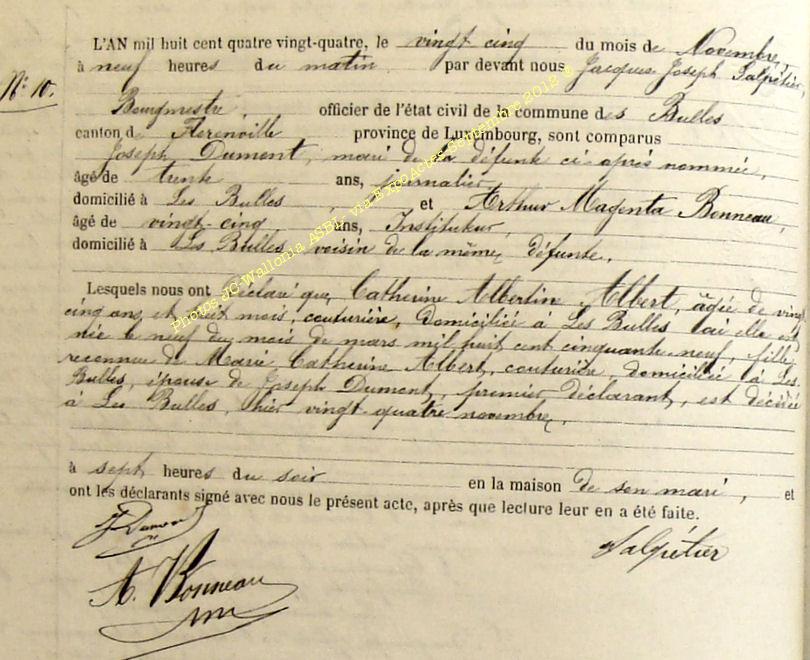 L'AN mil huit cent quatre vingt-quatre, le vingt cinq du mois de Novembre,
à neuf heures du matin par devant nous Jacques Joseph Salpétier,
N° 10.
Bourgmestre, officier de l'état civil de la commune des Bulles
canton de Florenville province de Luxembourg, sont comparus
Joseph Dumont, mari de la défunte ci-après nommée,
âgé de trente ans, journalier,
domicilié à Les Bulles, et Arthur Magenta Bonneau,
âgé de vingt-cinq ans, Instituteur,
domicilié à Les Bulles voisin de la même défunte.
Lesquels nous ont déclaré que Catherine Albertin Albert, âgée de vingt
cinq ans et huit mois, couturière, domiciliée à Les Bulles où elle est
née le neuf du mois de mars mil huit cent cinquante neuf, fille
reconnue de Marie Catherine Albert, couturière, domiciliée à Les
Bulles, épouse de Joseph Dumont, premier déclarant, est décédée
à Les Bulles, hier vingt quatre novembre,
à sept heures du soir en la maison de son mari, et
ont les déclarants signé avec nous le présent acte, après que lecture leur en a été faite.
J Dumont
Salpétier
A. Bonneau
Photos JC Wallonia ASBL, via ExpoActes Septembre 2012 ©